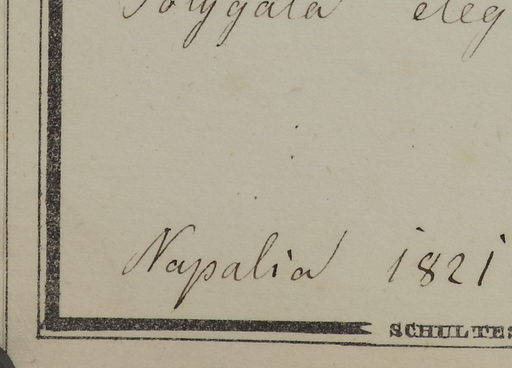 Polygala eleg
Napalia 1821
SCHULTES